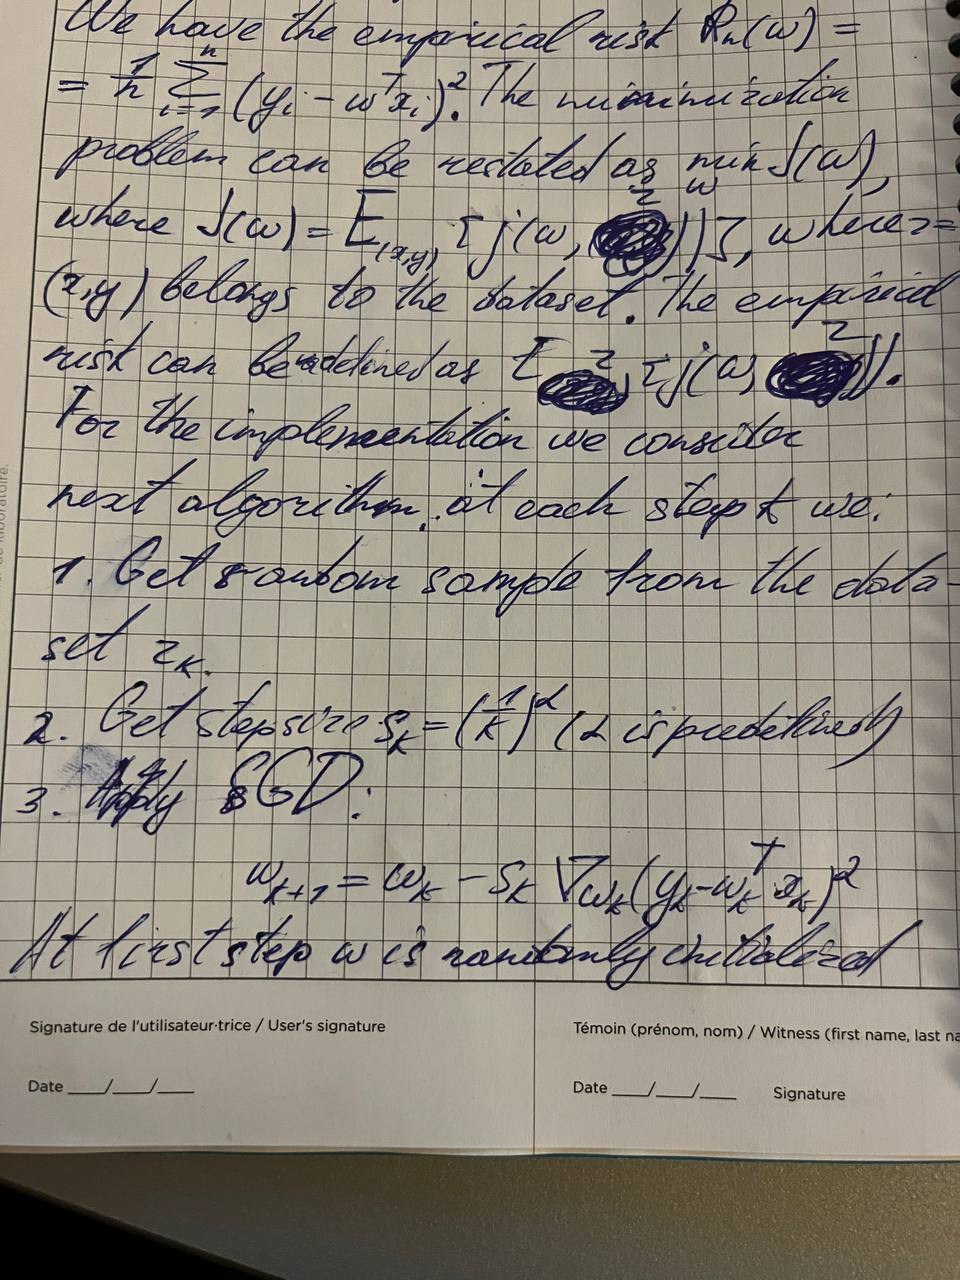 We have the empirical risk Rn(w) =
= 1/n Σ_{i=1}^{n} (yi - w^T xi)^2. The minimization
problem can be restated as min_w J(w),
where J(w) = E_(x,y) [j(w, z)], where z=
(x,y) belongs to the dataset. The empirical
risk can be defined as E_z [j(w, z)].
For the implementation we consider
next algorithm. at each step k we:
1. Get random sample from the data-
set z_k.
2. Get step size s_k = (1/k)^α (α is predefined)
3. Apply SGD:
w_{k+1} = w_k - s_k ∇_{w_k} (y_k - w_k^T x_k)^2
At first step w is randomly initialized
Signature de l'utilisateur·trice / User's signature
Témoin (prénom, nom) / Witness (first name, last na
Date ___/___/___
Date ___/___/___ Signature
de laboratoire.